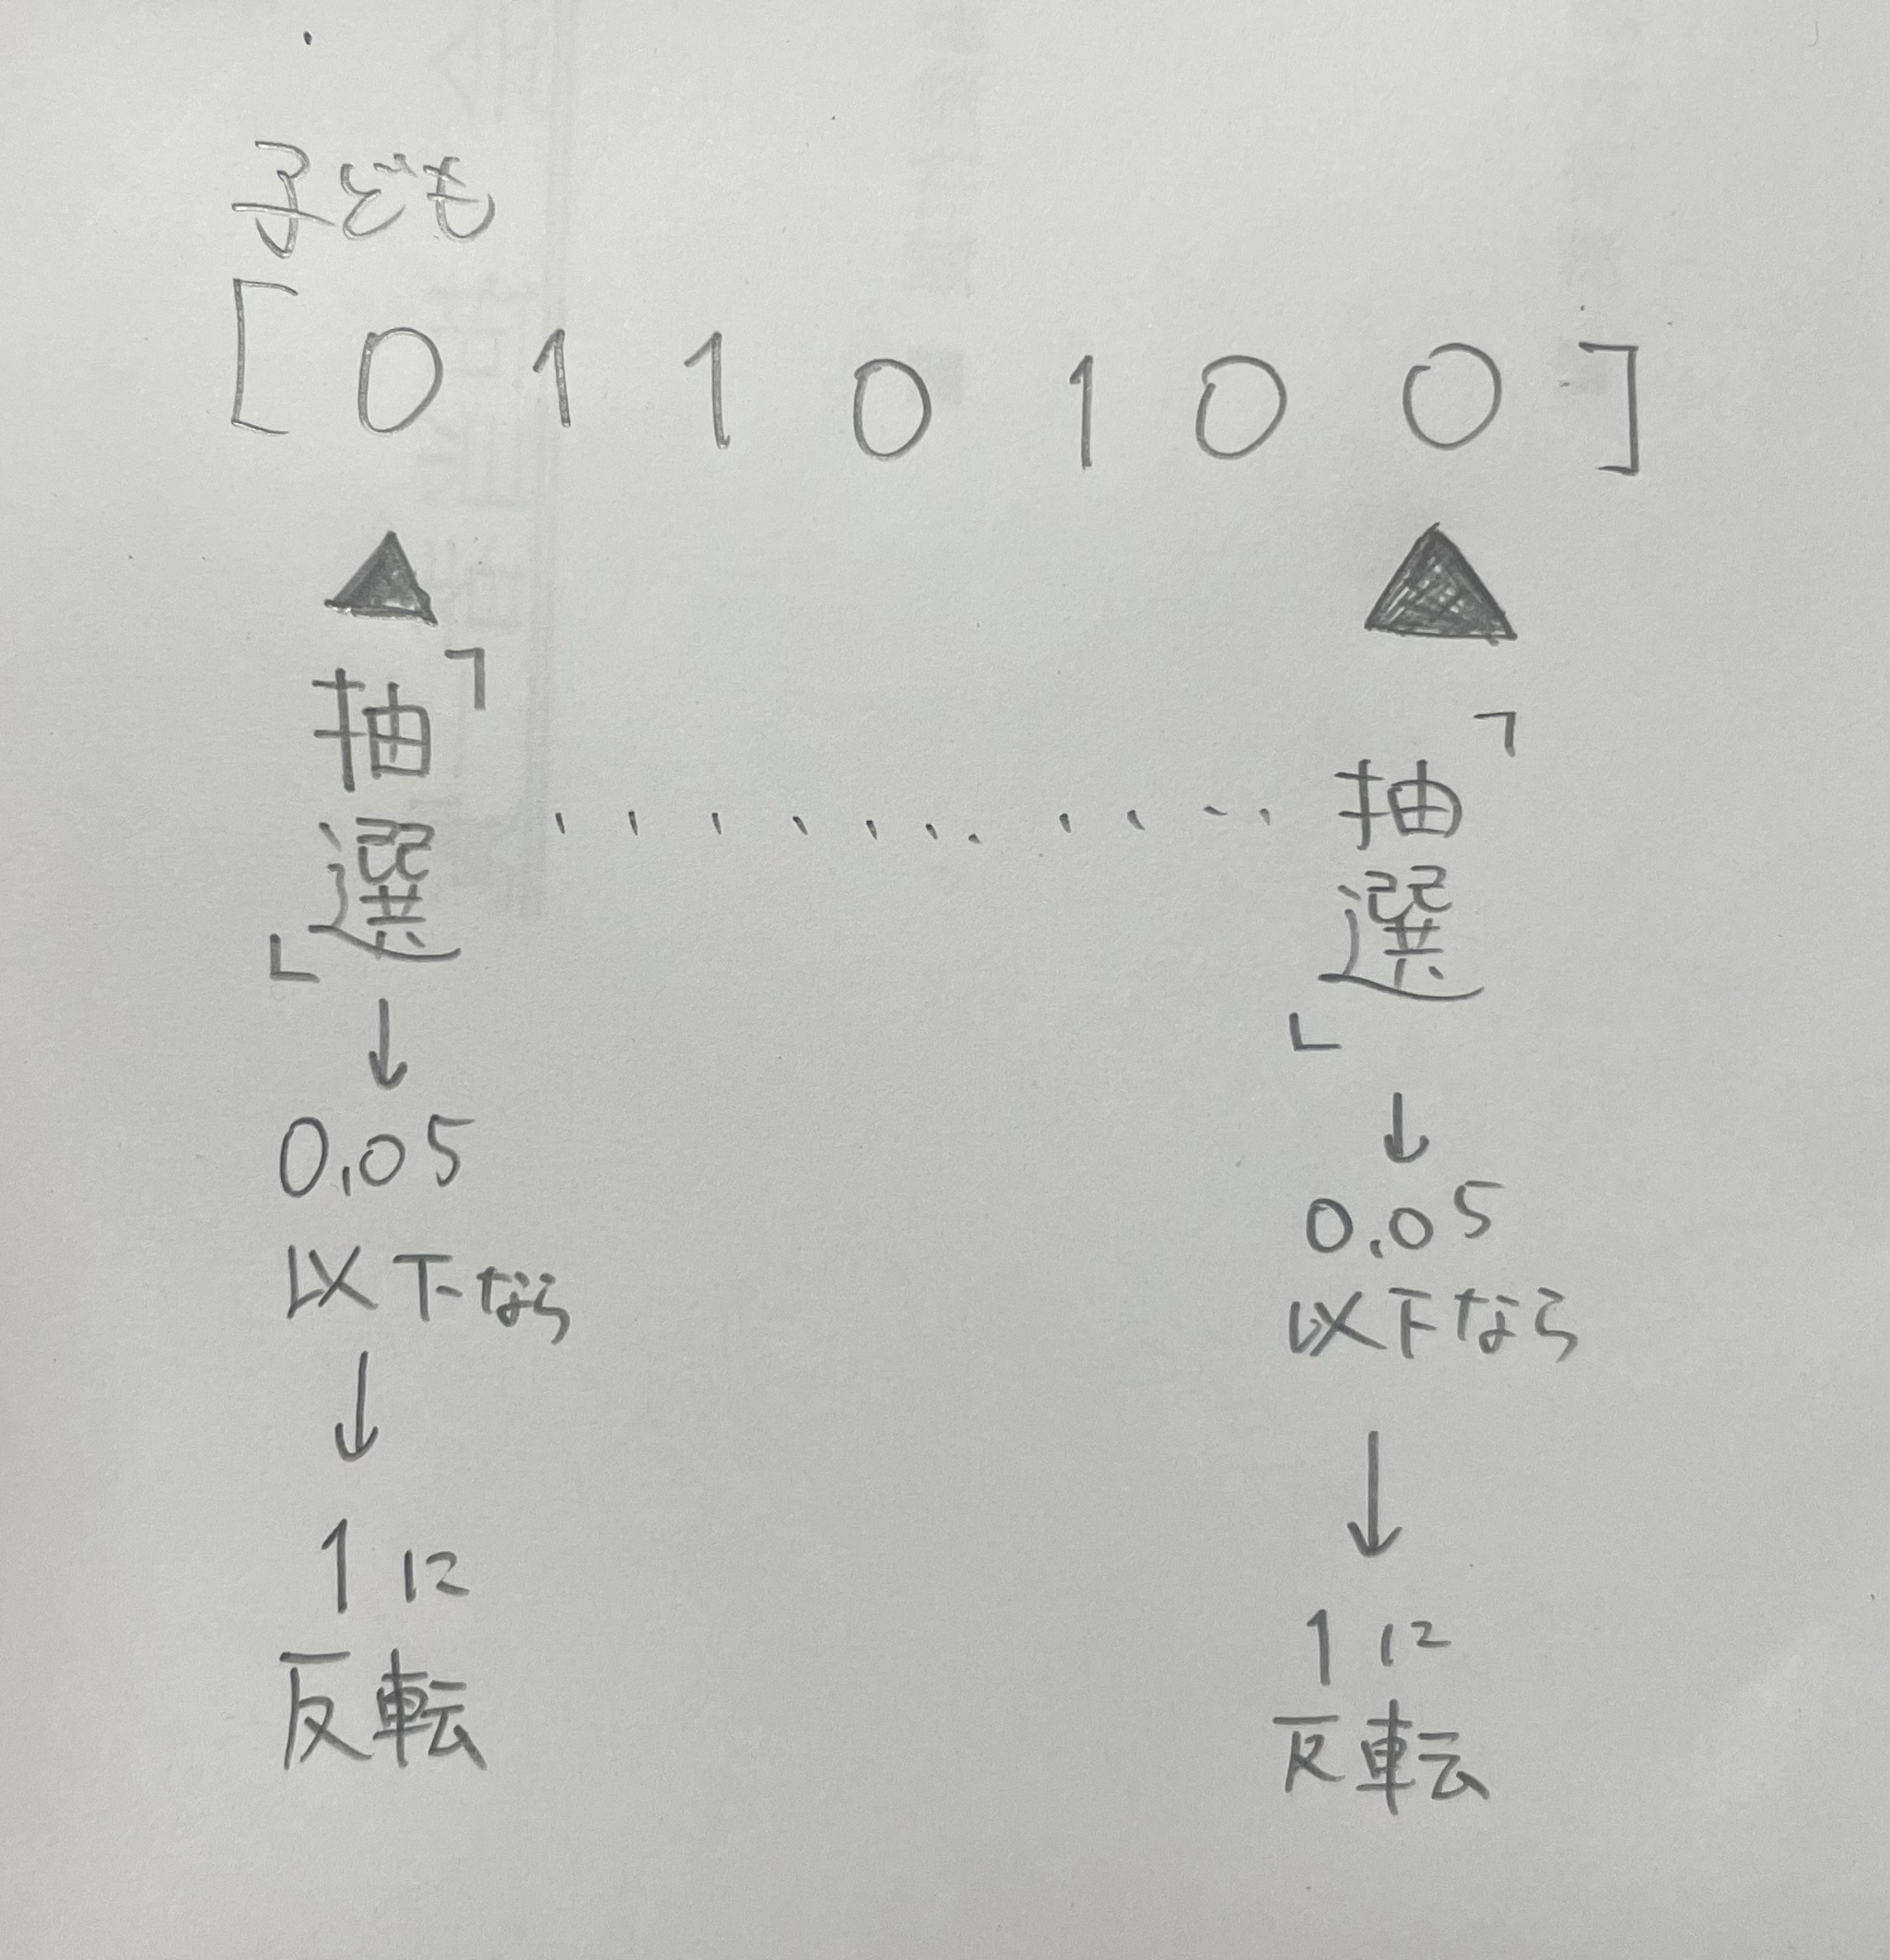 子ども
[ 0 1 1 0 1 0 0 ]
「抽選」
↓
0.05
以下なら
↓
1に
反転
..........
「抽選」
↓
0.05
以下なら
↓
1に
反転